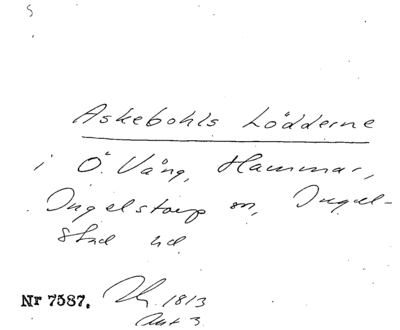 Askebohls Lödderne
i Ö. Vång, Hammar,
Ingelstorp sn, Ingel-
stad hd
Nr 7587. 1813
Akt 3